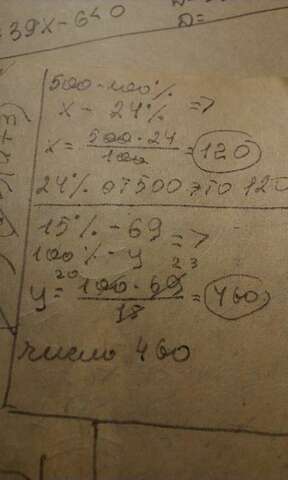 =39x-640
D=
500-100%
x - 24% =>
x = 500·24/100 = 120
24% от 500 это 120
15% - 69 =>
100% - y
20 23
y = 100·69/15 = 460
число 460